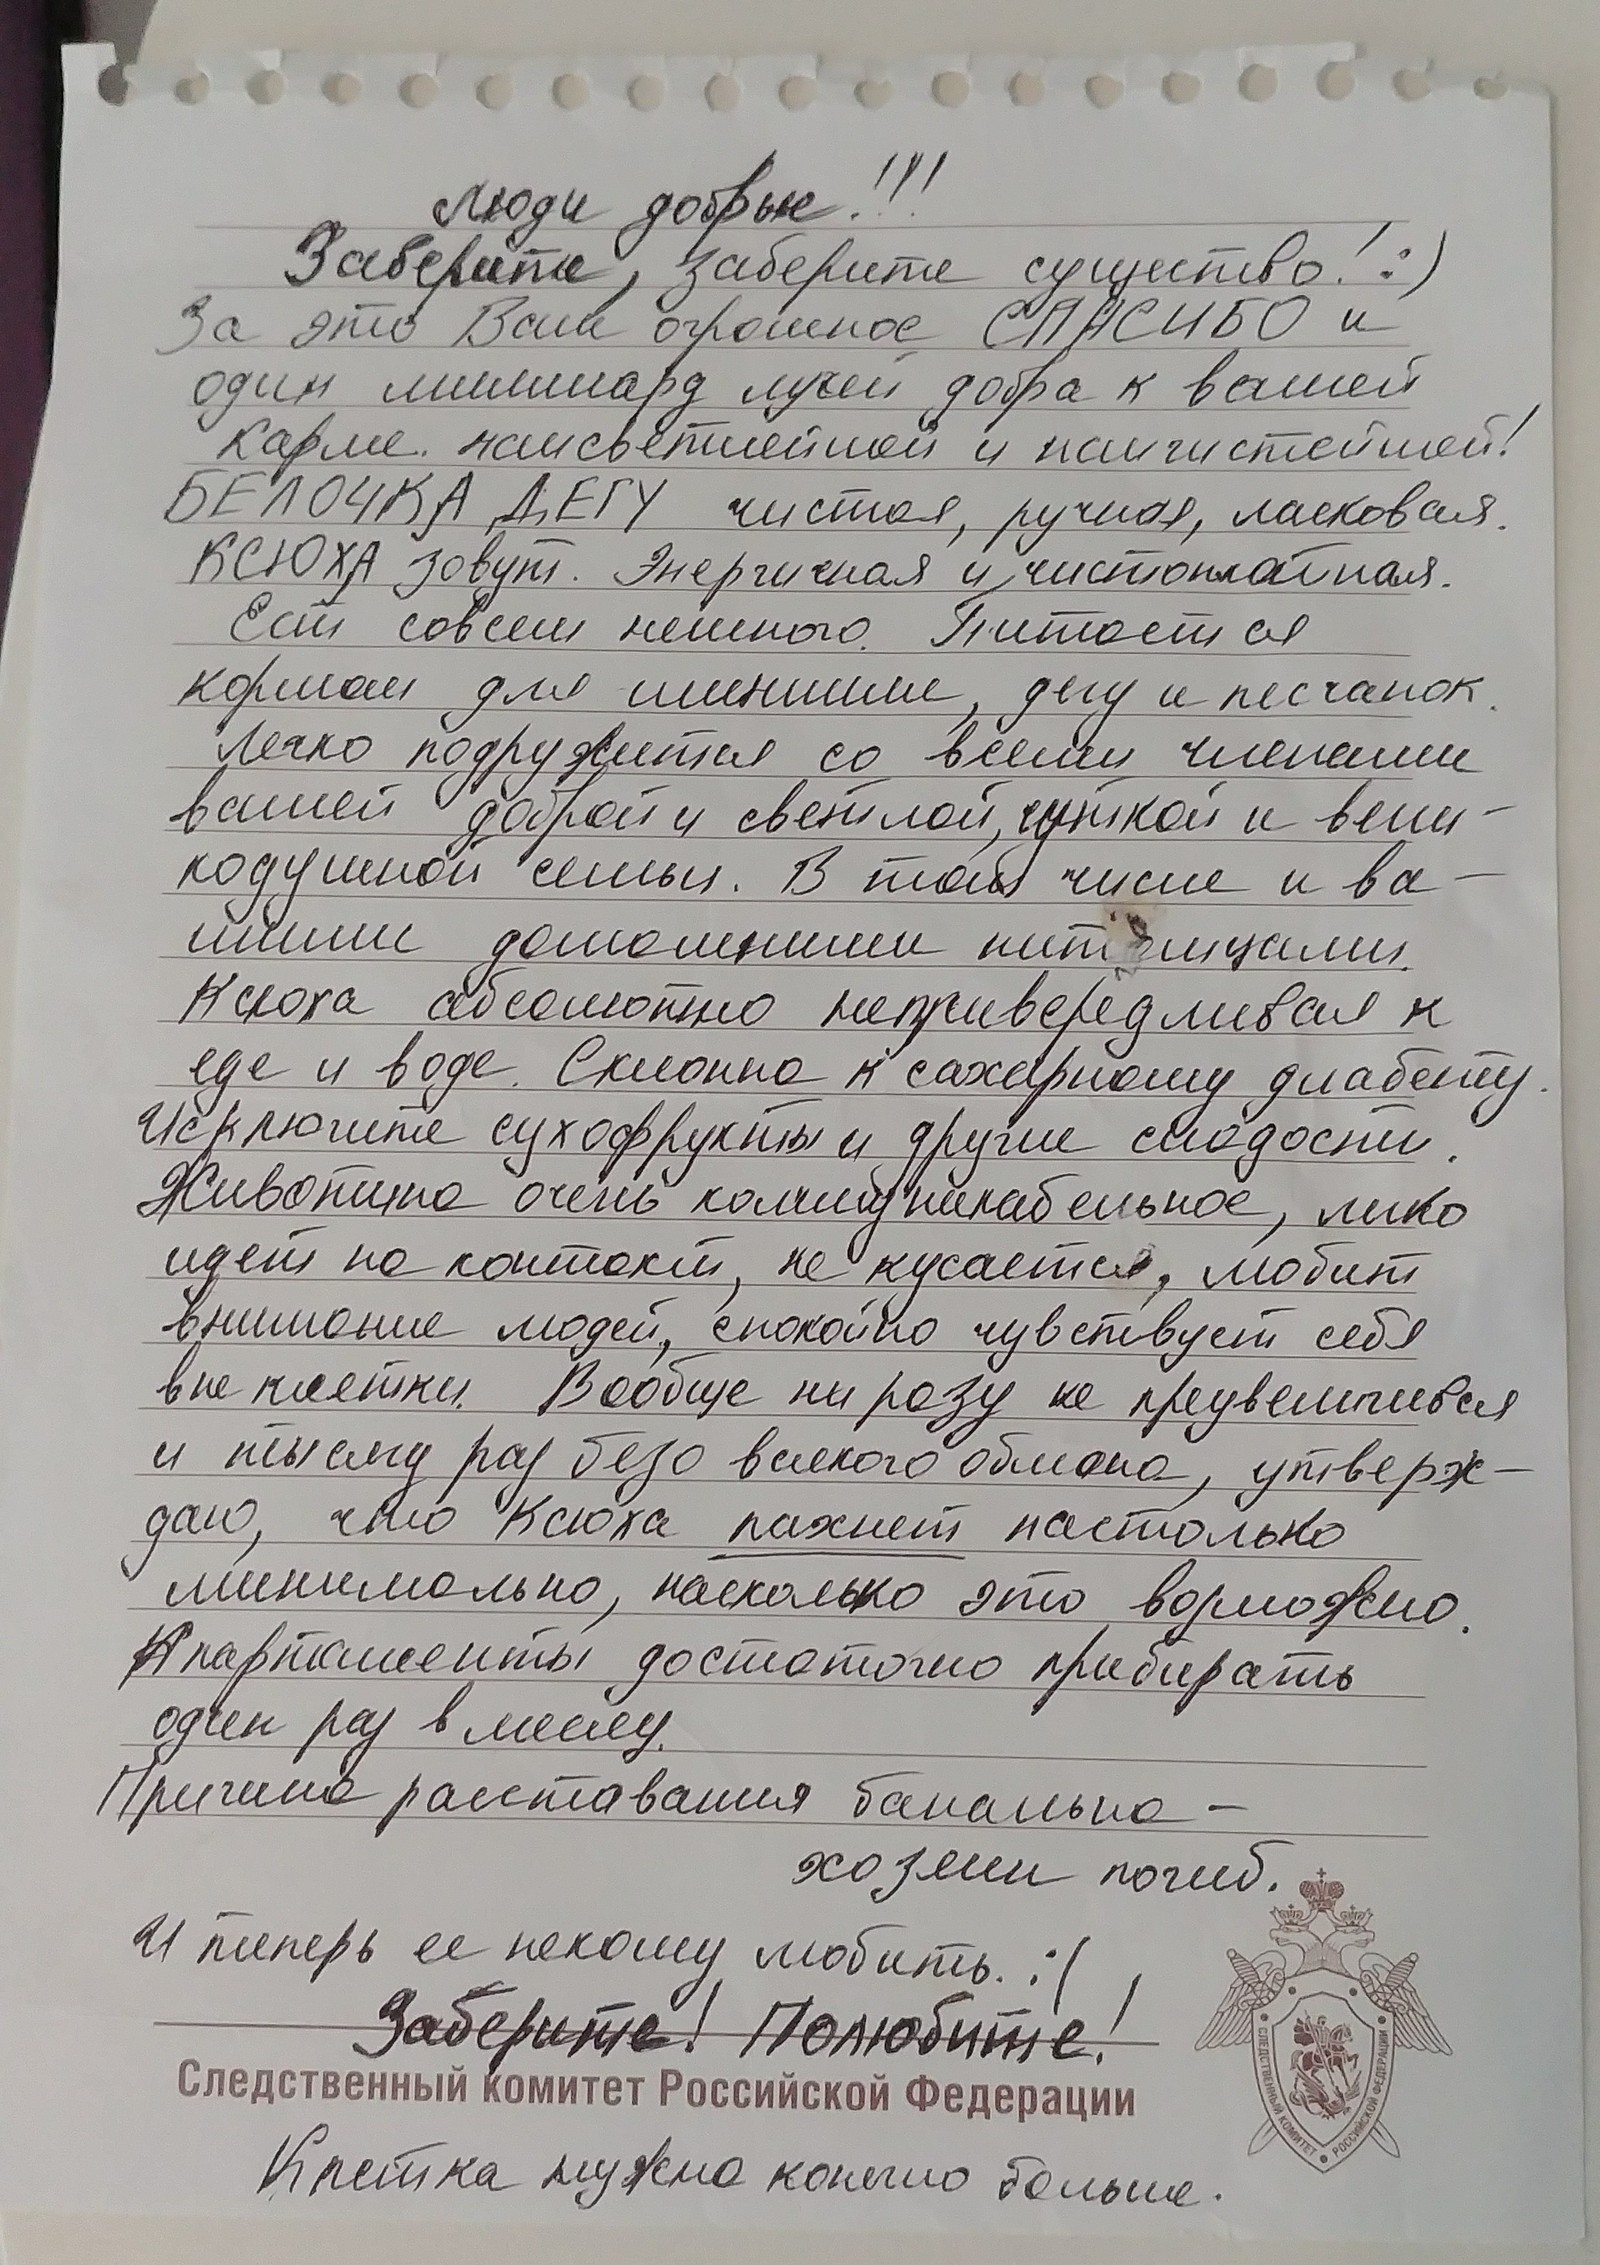 Люди добрые!!!
Заберите, заберите существо! :)
За это Вам огромное СПАСИБО и
один миллиард лучей добра к вашей
карме. наисветлейшей и наичистейшей!
БЕЛОЧКА ДЕГУ чистая, ручная, ласковая.
КСЮХА зовут. Энергичная и чистоплотная.
Ест совсем немного. Питается
кормом для шиншилл, дегу и песчанок.
Легко подружится со всеми членами
вашей доброй и светлой, чуткой и вели-
кодушной семьи. В том числе и ва-
шими домашними питомцами.
Ксюха абсолютно непривередливая к
еде и воде. Склонна к сахарному диабету.
Исключите сухофрукты и другие сладости.
Животина очень коммуникабельное, легко
идет на контакт, не кусается, любит
внимание людей, спокойно чувствует себя
вне клетки. Вообще ни разу не преувеличивая
и тысячу раз безо всякого обмана, утверж-
даю, что Ксюха пахнет настолько
минимально, насколько это возможно.
Апартаменты достаточно прибирать
один раз в месяц.
Причина расставания банальна -
хозяин погиб.
И теперь ее некому любить. :(
Заберите! Полюбите!
Следственный комитет Российской Федерации
СЛЕДСТВЕННЫЙ КОМИТЕТ • РОССИЙСКОЙ ФЕДЕРАЦИИ
Клетка нужна конечно больше.